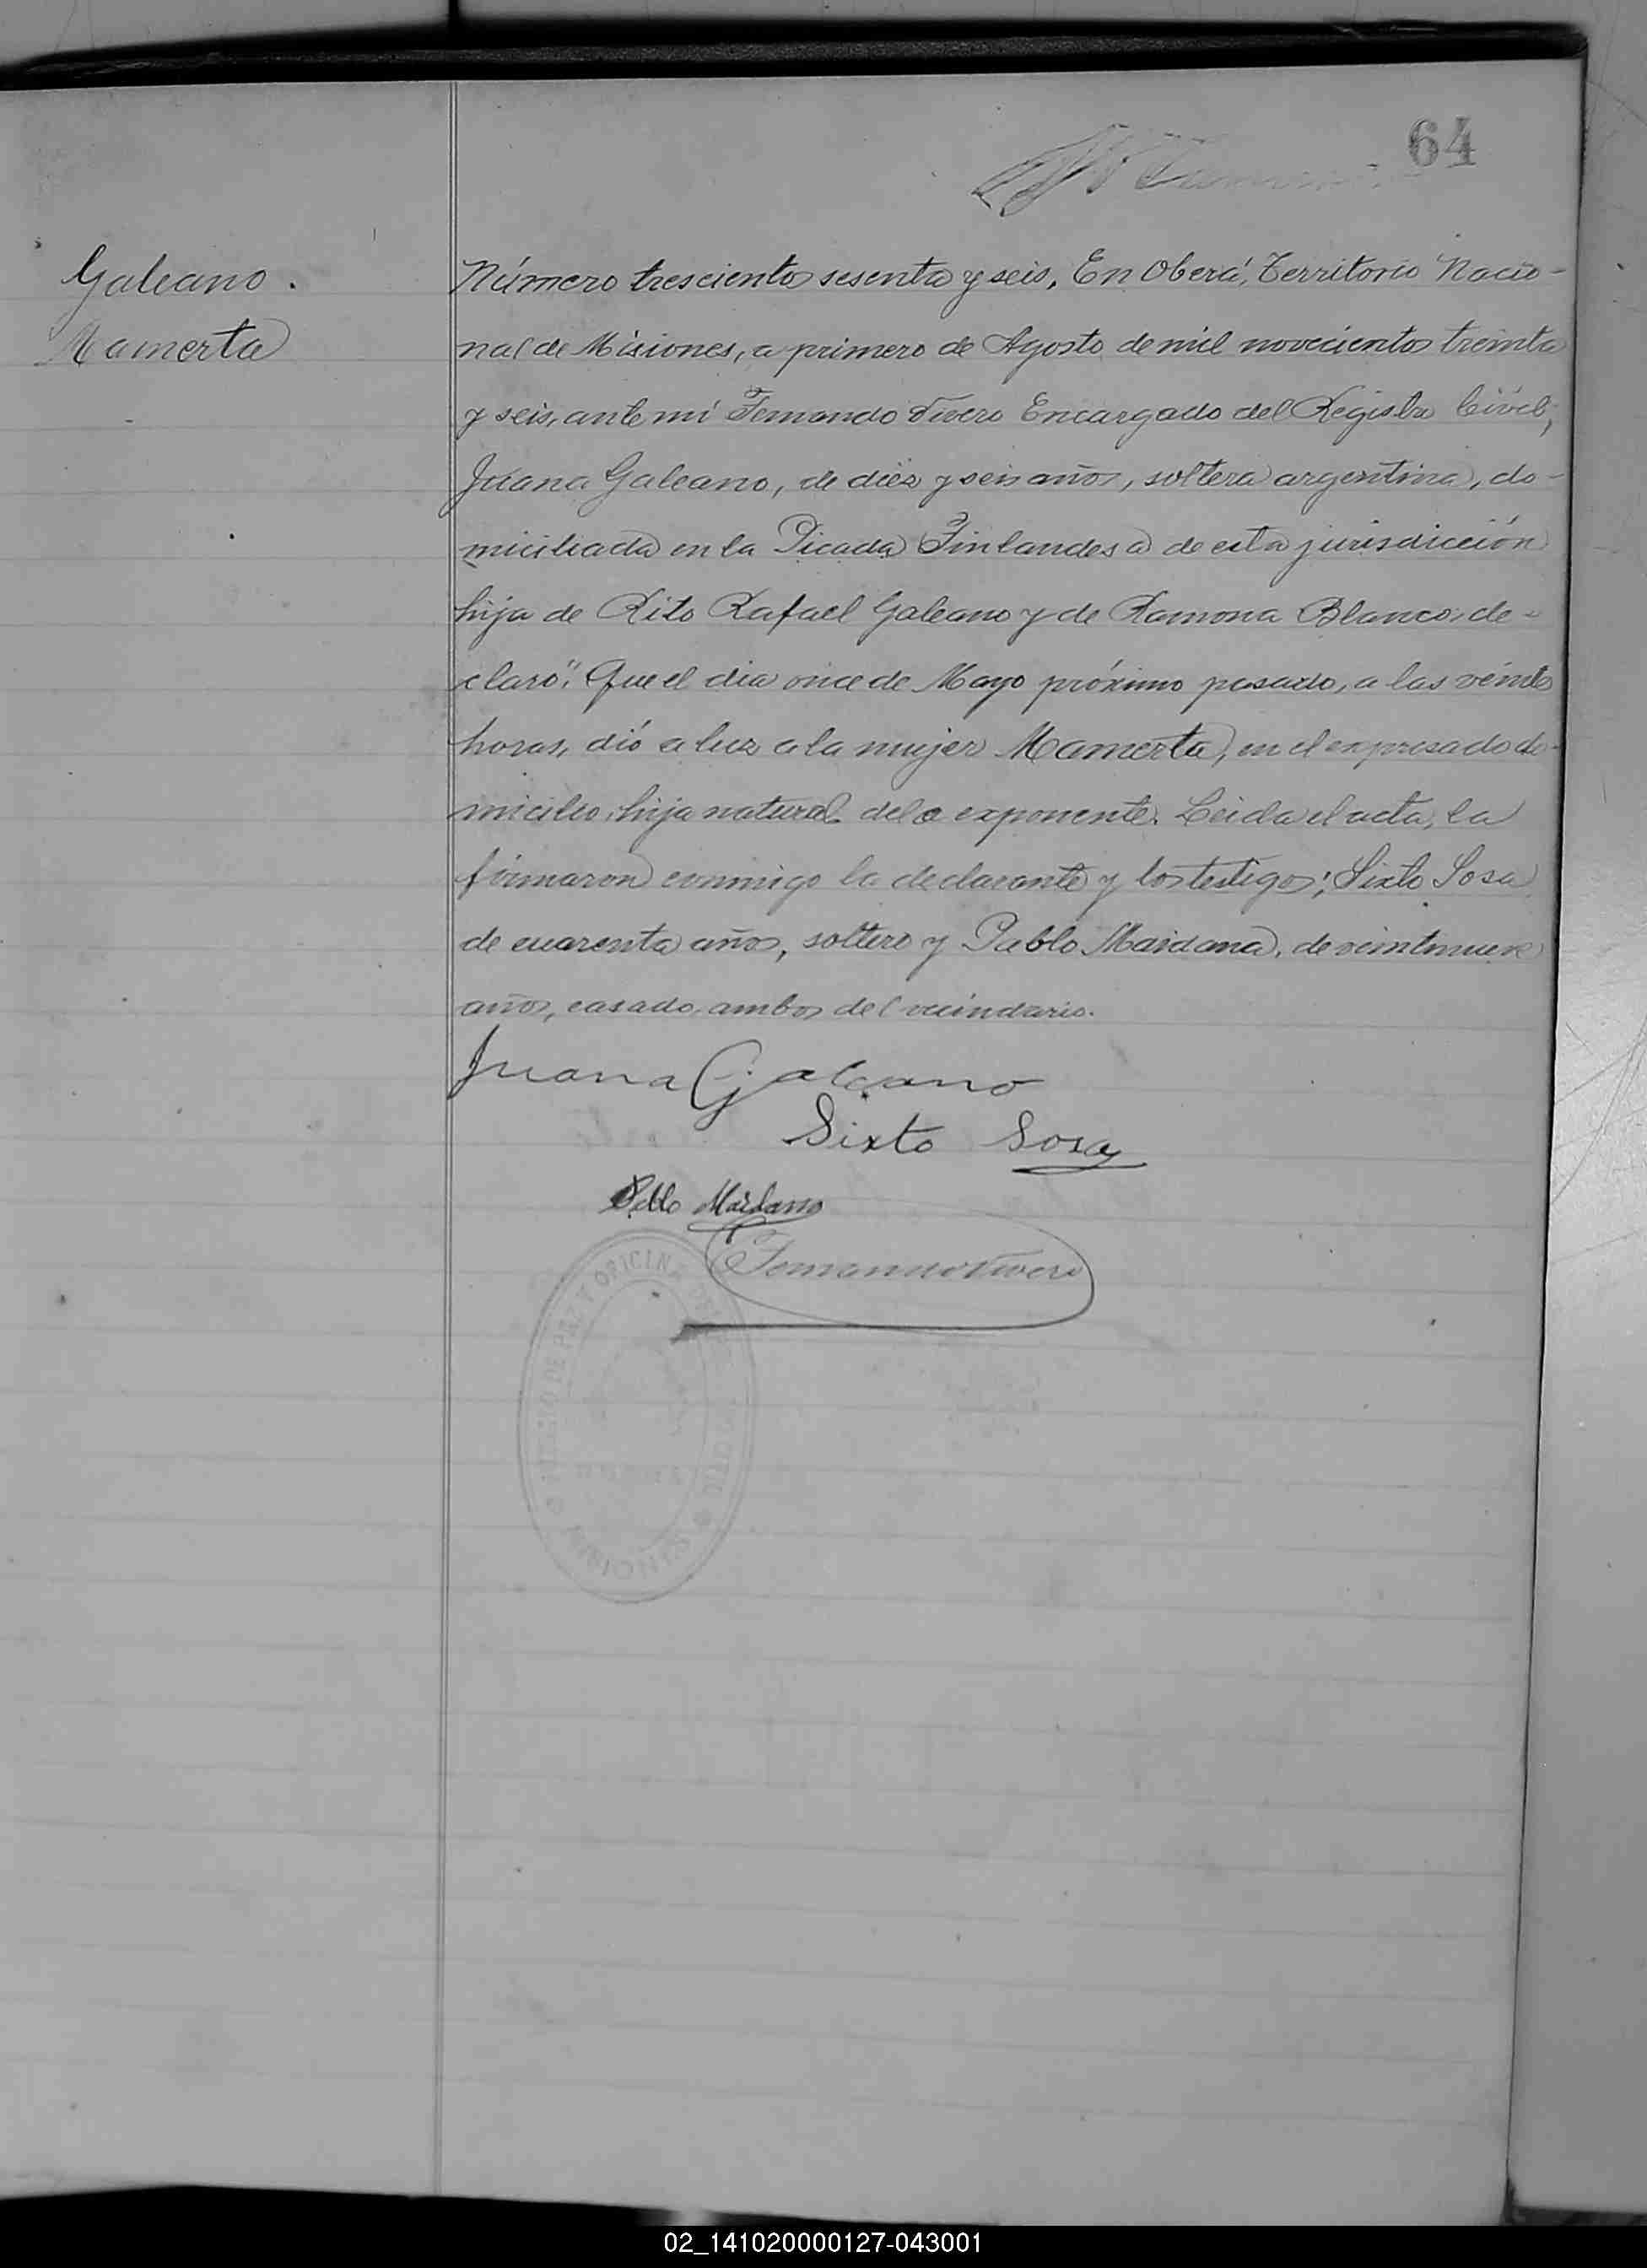 64
Galeano.
Mamerta
Número trescientos sesenta y seis, En Oberá, Territorio Nacio-
nal de Misiones, a primero de Agosto de mil novecientos treinta
y seis, ante mí Fernando Vivero Encargado del Registro Civil,
Juana Galeano, de diez y seis años, soltera argentina, do-
miciliada en la Picada Finlandesa de esta jurisdicción
hija de Rito Rafael Galeano y de Ramona Blanco, de-
claró": Que el dia once de Mayo próximo pasado, a las veinte
horas, dió a luz a la mujer Mamerta, en el expresado do-
micilio, hija natural de la exponente. Leida el acta, la
firmaron conmigo la declarante y los testigos; Sixto Sosa
de cuarenta años, soltero y Pablo Maidana, de veintinueve
años, casado, ambos del vecindario.
Juana Galeano
Sixto Sosa
Pablo Maidana
Fernando Vivero
JUZGADO DE PAZ Y OFICINA DEL CIVIL
MISIONES
02_141020000127-043001